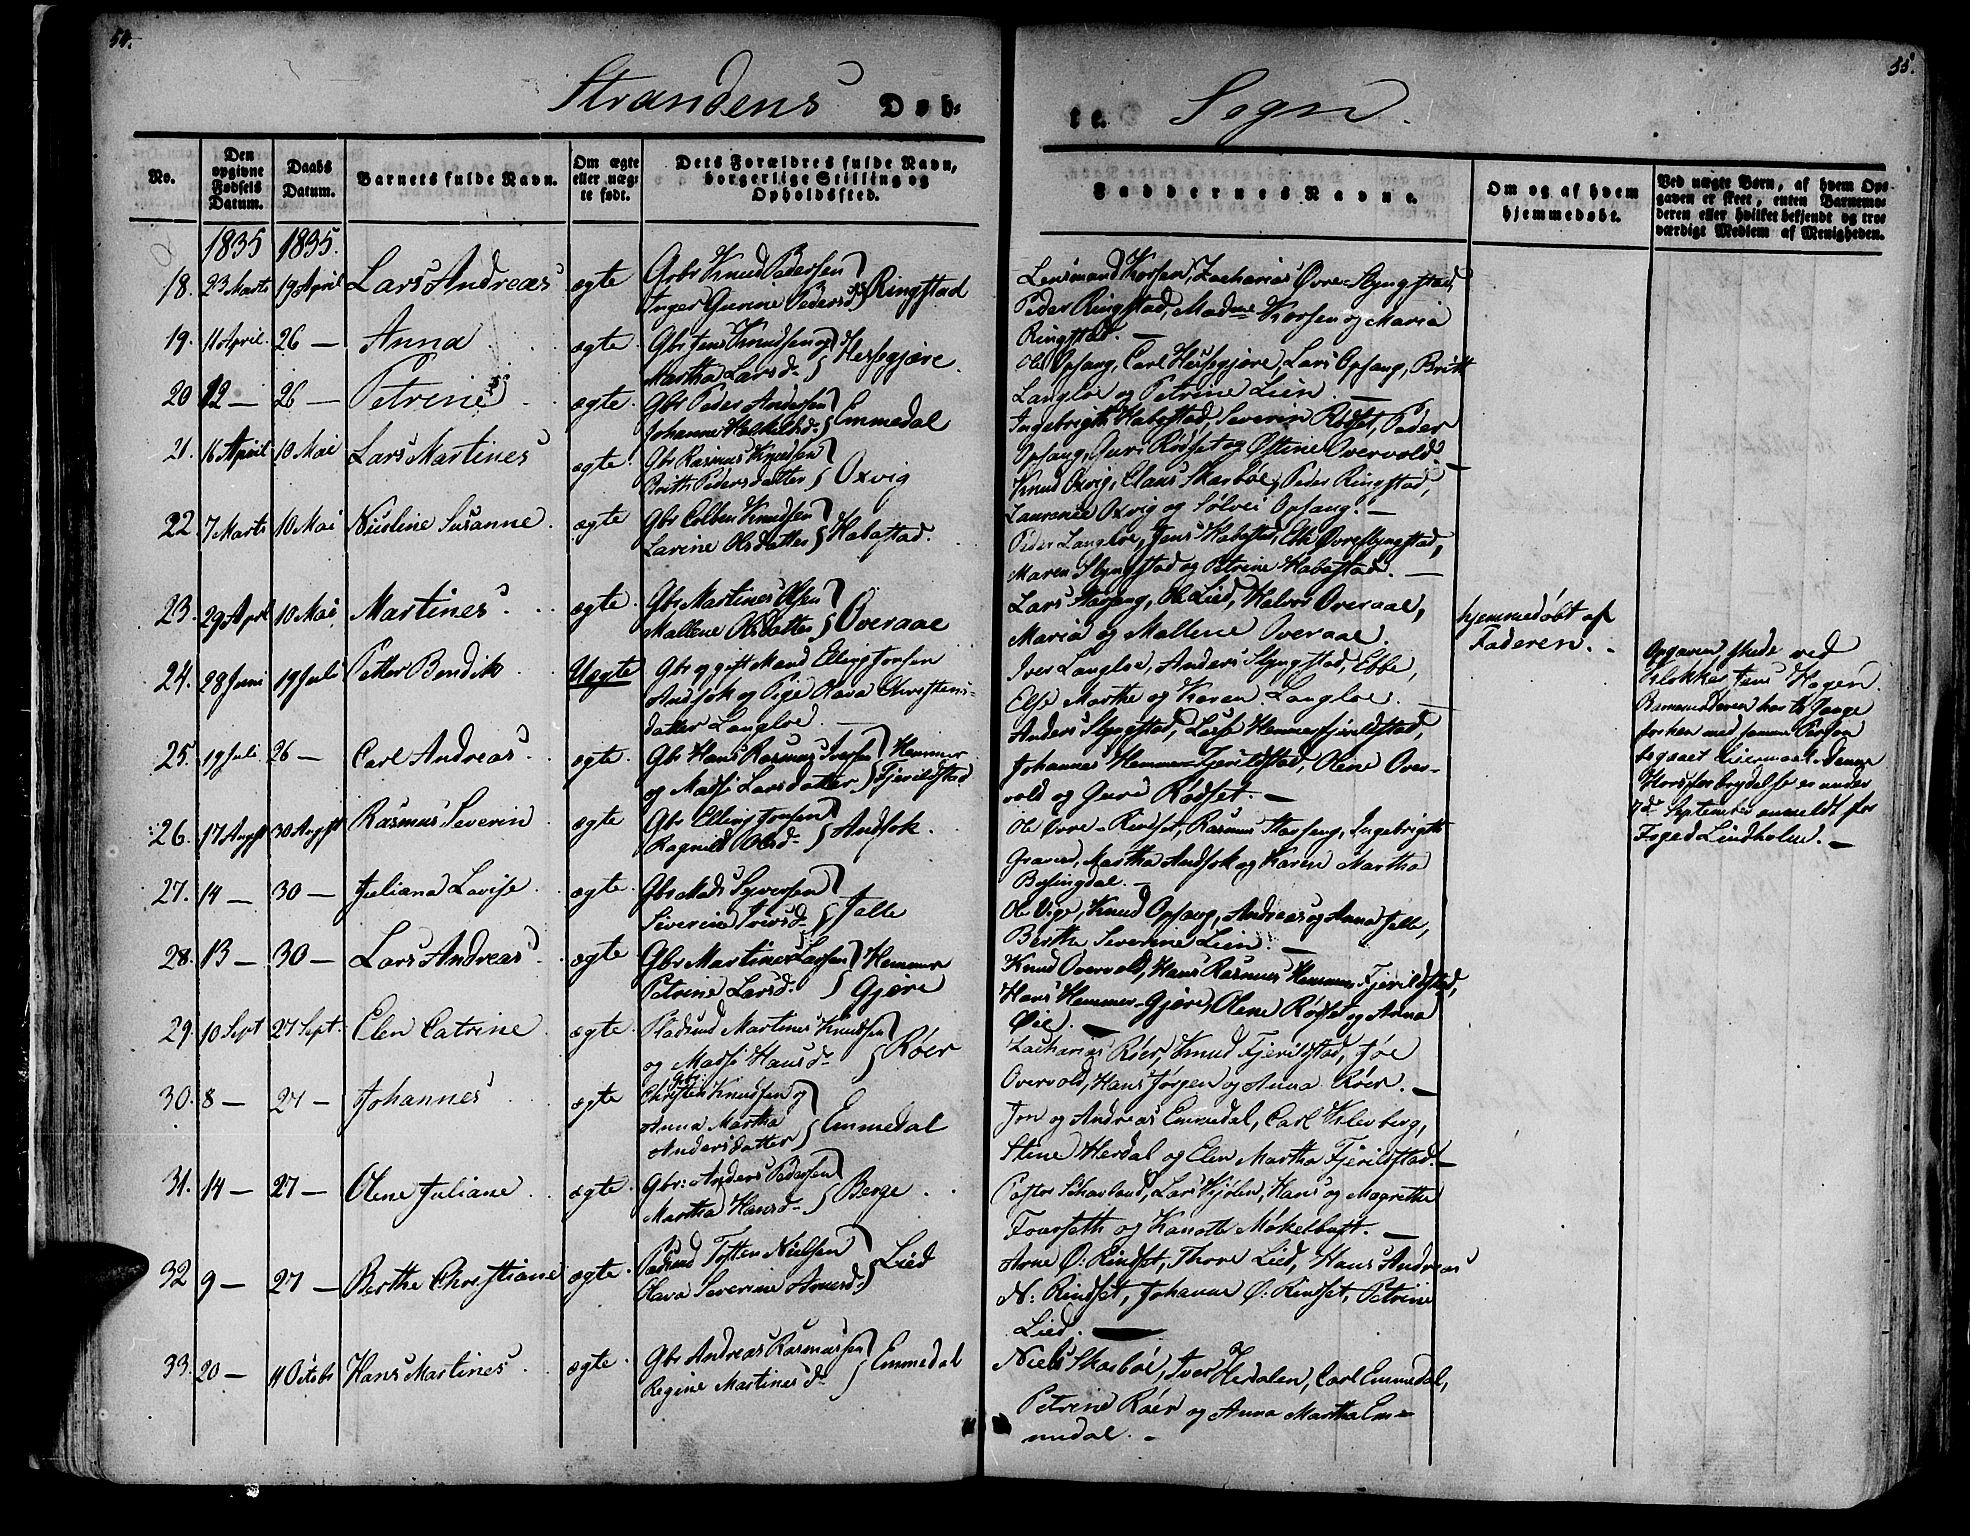 54.
55.
Strandens Døb-
te. Sogn.
No.
Den opgivne Fødsels Datum.
Daabs Datum.
Barnets fulde Navn.
Om ægte eller uægte født.
Dets Forældres fulde Navn, borgerlige Stilling og Opholdssted.
Faddernes Navne.
Om og af hvem hjemmedøbt.
Ved uægte Børn, af hvem Opgaven er skeet, enten Barnemoderen eller hvilket bekjendt og troværdigt Medlem af Menigheden.
1835 1835.
18. 23 Marts 19 April Lars Andreas ægte Gbr Knud Pedersen
Inger Gurine Pedersd. Ringstad
Lensmand Korsen, Zacharias Øvre-Slyngstad,
Peder Ringstad, Madme Korsen og Maria
Ringstad. —
19. 11 April. 26 — Anna ægte Gbr Jens Knudsen og
Martha Larsd. Hessegjære.
Ole Opsang, Carl Hessegjære, Lars Opsang, Britt
Langloe og Petrine Lien. —
20 12 — 26 — Petrine ægte Gbr Peder Andersen
Johanne d. Emmedal
Ingebrigt Habostad, Severin Rødset, Peder
Opsang, Guri Rødset og Østine Overvold. —
21. 16 April 10 Mai Lars Martines ægte Gbr Rasmus Knudsen
Brith Pedersdatter Oxvig
Knud Oxvig, Claus Skarbøe, Peder Ringstad,
Laurense Oxvig og Sølvei Opsang. —
22. 7 Marts 10 Mai Nicoline Susanne. ægte Gbr Colben Knudsen
Lavine Olsdatter Habostad.
Peder Langloe, Jens Habostad, Øvreslyngstad,
Maren Slyngstad og Petrine Habostad. —
23. 29 April 10 Mai Martines. ægte. Gbr Martines Olsen
Mallene Olsdatter Overaae
Lars Opsang, Ole Lied, Halvor Overaae,
Maria og Mallene Overaae.
hjemmedøbt af
Faderen. —
24. 28 Juni 19 Juli Petter Bendik Uægte Gbr og gift Mand Elling Jonsen
Andsok og Pige Olava Christens-
datter Langloe. —
Iver Langloe, Anders Slyngstad, Ebbe,
Else Marthe og Karen Langloe. —
Opgaven skede ved
Klokker Jens Hagen.
Barnemoderen har tilforn
forhen med samme Person
begaaet Leiermaal. Denne
Horsforbrydelse er under
7de September anmeldt for
Foged Lindholm. —
25. 19 Juli 26 — Carl Andreas ægte. Gbr Hans Rasmus Iversen
og Madsi Larsdatter Hemmer-
Fjerildstad
Anders Slyngstad, Lasse Hemmerfjerildstad,
Johannes Hemmer-Fjerildstad, Oline Over-
vold og Guri Rødset. —
26. 17 Augst 30 Augst Rasmus Severin ægte Gbr Elling Jonsen
Ragnild Olsd. Andsok.
Ole Øvre-Rindset, Rasmus Opsang, Ingebrigt
Graven, Martha Andsok og Karen Martha
27. 14 — 30 — Juliana Lovise ægte. Gbr Mads Syversen
Severine Iversd. Jelle
Ole Vige, Knud Opsang, Andreas og Anna Jelle,
Berthe Severine Lien. —
28. 13 — 30 — Lars Andreas ægte Gbr Martines Larsen
Petrine Larsd. Hemmer
Gjære
Knud Overvold, Hans Rasmus Hemmer-Fjerildstad,
Hans Hemmer-Gjære, Olene Rødset og Anna
Øie. —
29. 10 Sept 27 Sept. Elen Catrine ægte. Pladsmd Martines Knudsen
og Madsi Hansd. Røer
Zacharias Røer, Knud Fjerildstad, Joe
Overvold, Hans Jørgen og Anna Røer. —
30. 8 — 27 — Johannes ægte Gbr. Christen Knudsen og
Anna Martha
Andersdatter Emmedal
Jon og Andreas Emmedal, Carl Kleverberg,
Stine Herdal og Elen Martha Fjerildstad. —
31. 14 — 27 — Olene Juliane ægte. Gbr: Anders Pedersen
Martha Hansd. Berge
Pastor Schavland, Lars Kjølen, Hans og Magrethe
Fourseth og Hanotte Møkelbust. —
32 9 — 27 — Berthe Christiane ægte. Pladsmd Tosten Nielsen
Olava Severine Arnesd. Lied
Arne Ø: Rindset, Thore Lied, Hans Andreas
N: Rindset, Johanne Ø: Rindset, Petrine
Lied. —
33. 20 — 11 Octobr Hans Martines. ægte. Gbr Andreas Rasmussen
Regine Martines d. Emmedal
Niels Skarbøe, Iver Herdalen, Carl Emmedal,
Petrine Røer og Anna Martha Em-
medal. —